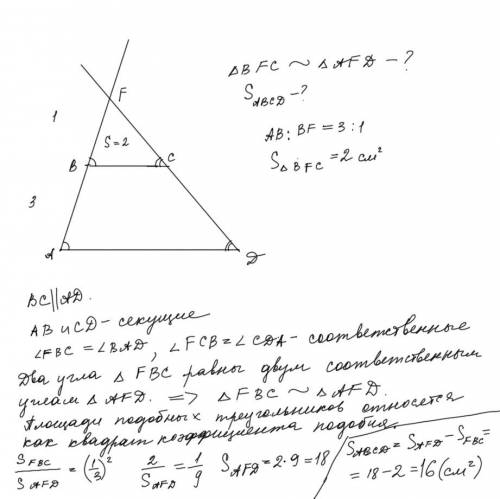 △BFC ~ △AFD - ?
S_ABCD - ?
AB : BF = 3 : 1
S_△BFC = 2 см²
F
1
S=2
B
C
3
A
D
BC || AD.
AB и CD - секущие
∠FBC = ∠BAD, ∠FCB = ∠CDA - соответственные
Два угла △ FBC равны двум соответственным
углам △ AFD. => △ FBC ~ △ AFD.
Площади подобных треугольников относятся
как квадрат коэффициента подобия.
S_FBC / S_AFD = (1/3)²   2 / S_AFD = 1/9   S_AFD = 2·9 = 18
S_ABCD = S_AFD - S_FBC =
= 18 - 2 = 16 (см²)